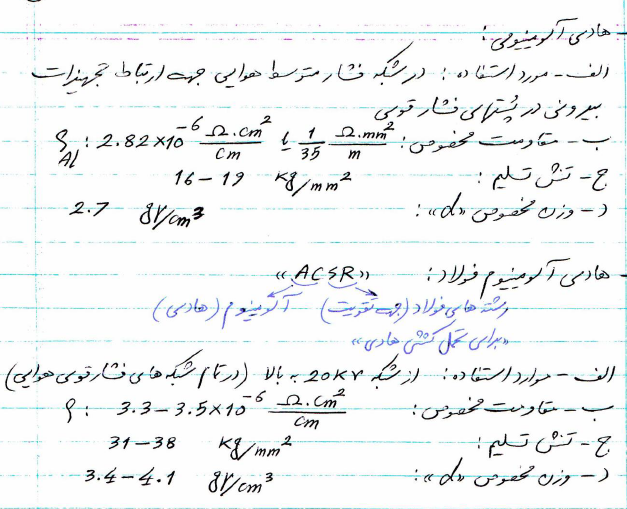 - هادی آلومینیومی:
الف - مورد استفاده: در شبکه فشار متوسط هوایی جهت ارتباط تجهیزات
بیرونی در پستهای فشار قوی
ب - مقاومت مخصوص: ρAl : 2.82×10^-6 Ω.cm²/cm یا 1/35 Ω.mm²/m
ج - تنش تسلیم: 16-19 Kg/mm²
د - وزن مخصوص «d»: 2.7 gr/cm³
- هادی آلومینیوم فولاد: «ACSR»
رشته های فولاد (جهت تقویت) آلومینیوم (هادی)
«برای تحمل کشش هادی»
الف - موارد استفاده: از شبکه 20KV به بالا (در تمام شبکه های فشار قوی هوایی)
ب - مقاومت مخصوص: ρ : 3.3-3.5×10^-6 Ω.cm²/cm
ج - تنش تسلیم: 31-38 Kg/mm²
د - وزن مخصوص «d»: 3.4-4.1 gr/cm³